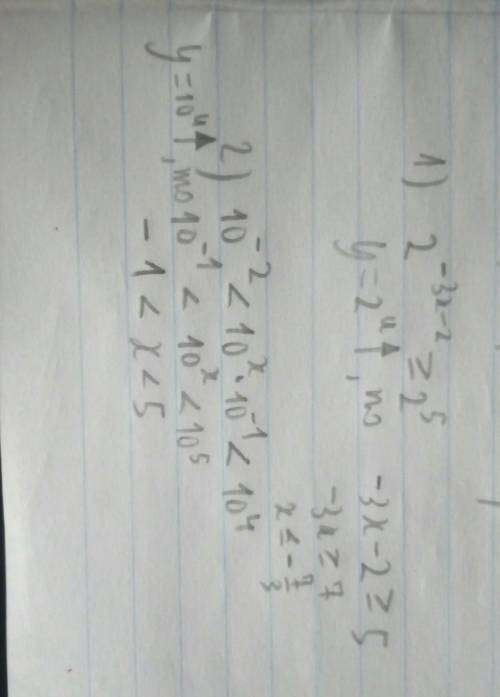 1) 2^{-3x-2} ≥ 2^5
y=2^u ↑, то -3x-2 ≥ 5
-3x ≥ 7
x ≤ -7/3
2) 10^{-2} < 10^x · 10^{-1} < 10^4
y=10^u ↑, то 10^{-1} < 10^x < 10^5
-1 < x < 5